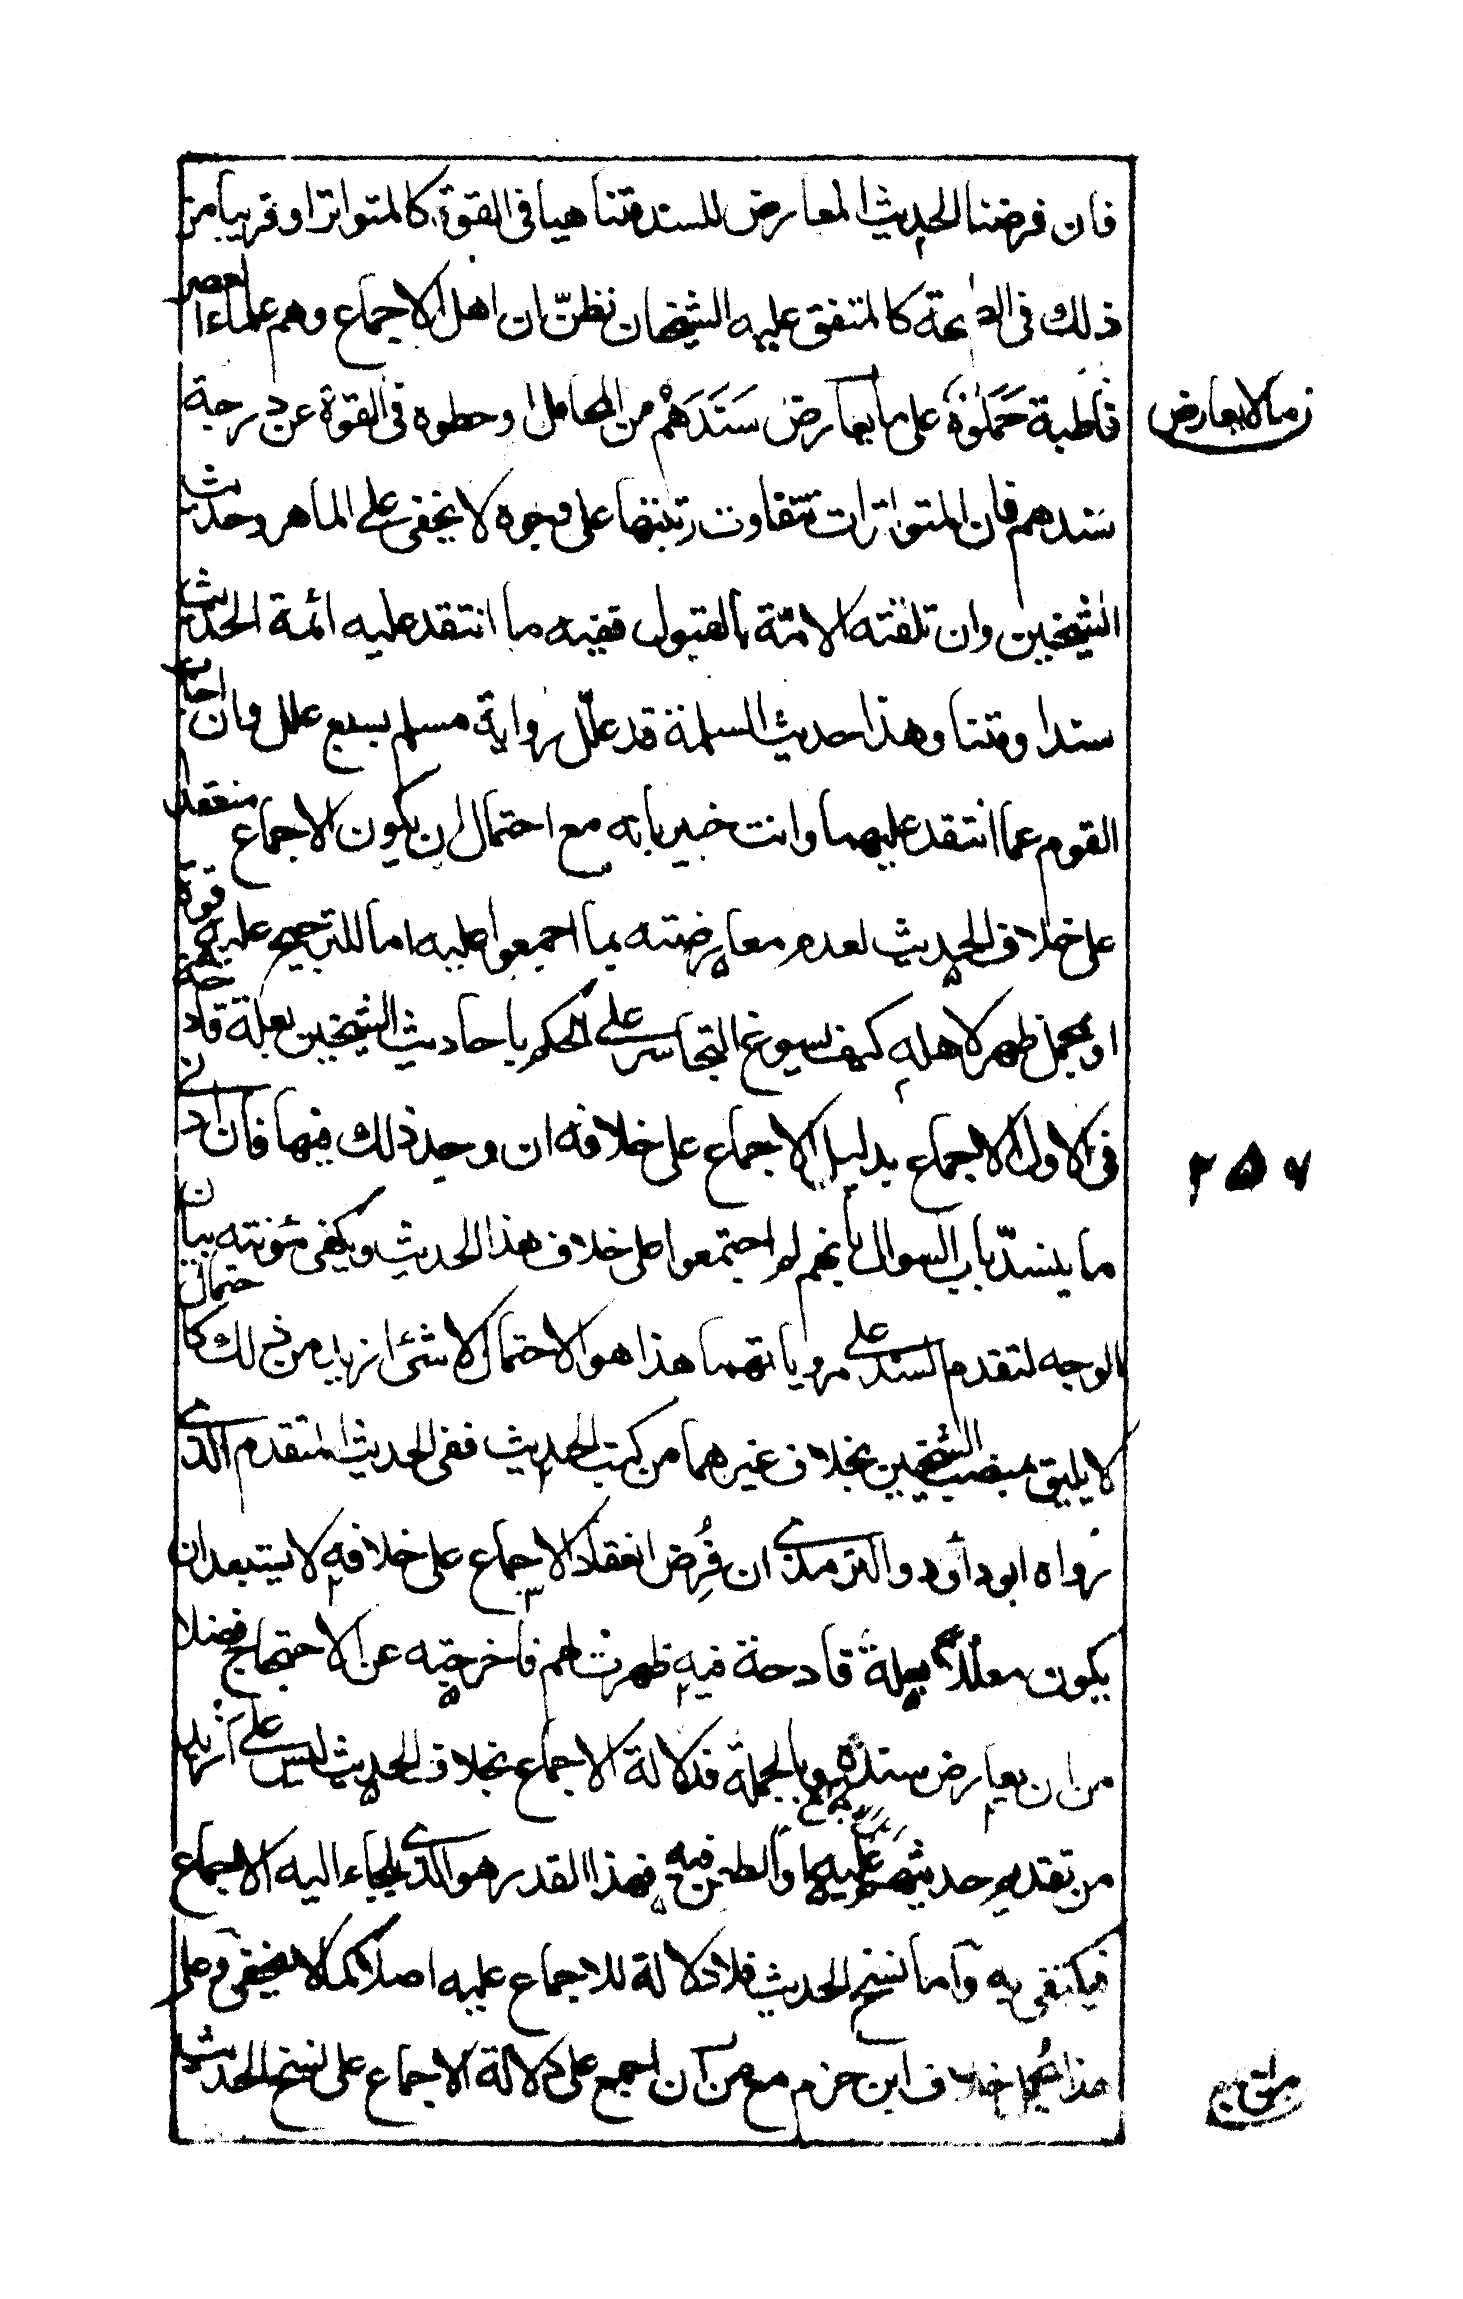 فان فرضنا الحديث المعارض للسند متناهيا في القوة كالمتواتر او قريبا من
ذلك في الدرجة كالمتفق عليه الشيخان نظنّ ان اهل الاجماع وهم علماء العصر
قاطبة حَمَلُوْهُ على ما يعارض سَنَدَهُمْ من المحامل او حطوه في القوة عن درجة
ز ما لا يعارض
سندهم فان المتواترات تتفاوت رتبتها على وجوه لا تخفى على الماهر وحديث
الشيخين وان تلقته الامّة بالقبول ففيه ما انتقد عليه ائمة الحديث
سندا ومتنا وهذا حديث البسملة قد علّل رواية مسلم بسبع علل وان اجاب
القوم عما انتقد عليهما وانت خبير بانه مع احتمال ان يكون الاجماع منعقدا
على خلاف الحديث لعدم معارضته بما اجمعوا عليه اما للترجيح عليه قوة
او لمحمل ظهر لاهله كيف يسوغ التجاسر على الحكم باحاديث الشيخين بعلة قادحة
في الاول الاجماع بدليل الاجماع على خلافه ان وجد ذلك فيها فان ادنى
٢٥٧
ما ينسدّ باب السوال بانهم لم اجتمعوا على خلاف هذا الحديث ويكفي مئونته بيان
بالوجه لتقدم السند على مروياتهما هذا هو الاحتمال لا شئ ازيد من ذلك كاحتمال
لا يليق بمنصب الشيخين بخلاف غيرهما من كتب الحديث ففي الحديث المتقدم الذى
رواه ابو داود والترمذى ان فُرِض انعقاد الاجماع على خلافه لا يستبعد ان
يكون معللا بعلة قادحة فيه ظهرت لهم فاخرجته عن الاحتجاج فضلا
من ان يعارض سنده وبالجملة فدلالة الاجماع بخلاف الحديث ليس على ازيد
من تقديم حديثهم عليها والطعن فيه فهذا القدر هو الذى يلجاء اليه الاجماع
فيكتفى به وآما نسخ الحديث فلا دلالة للاجماع عليه اصلا كما لا يخفى وعلى
هذا يُحمل خلاف ابن حزم مع من اجمع على دلالة الاجماع على نسخ الحديث